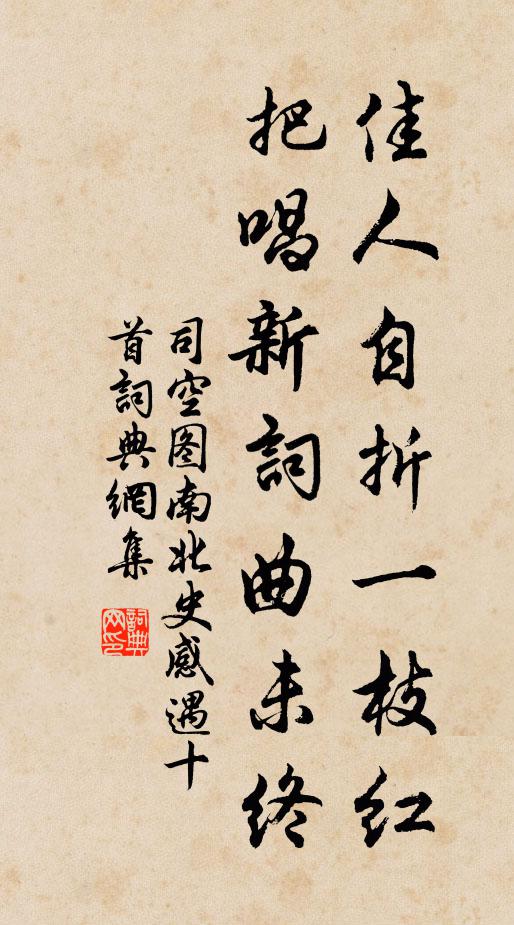 佳人自折一枝红
把唱新詞曲未终
司空图南北史感遇十
首詞典網集
詞典
网印